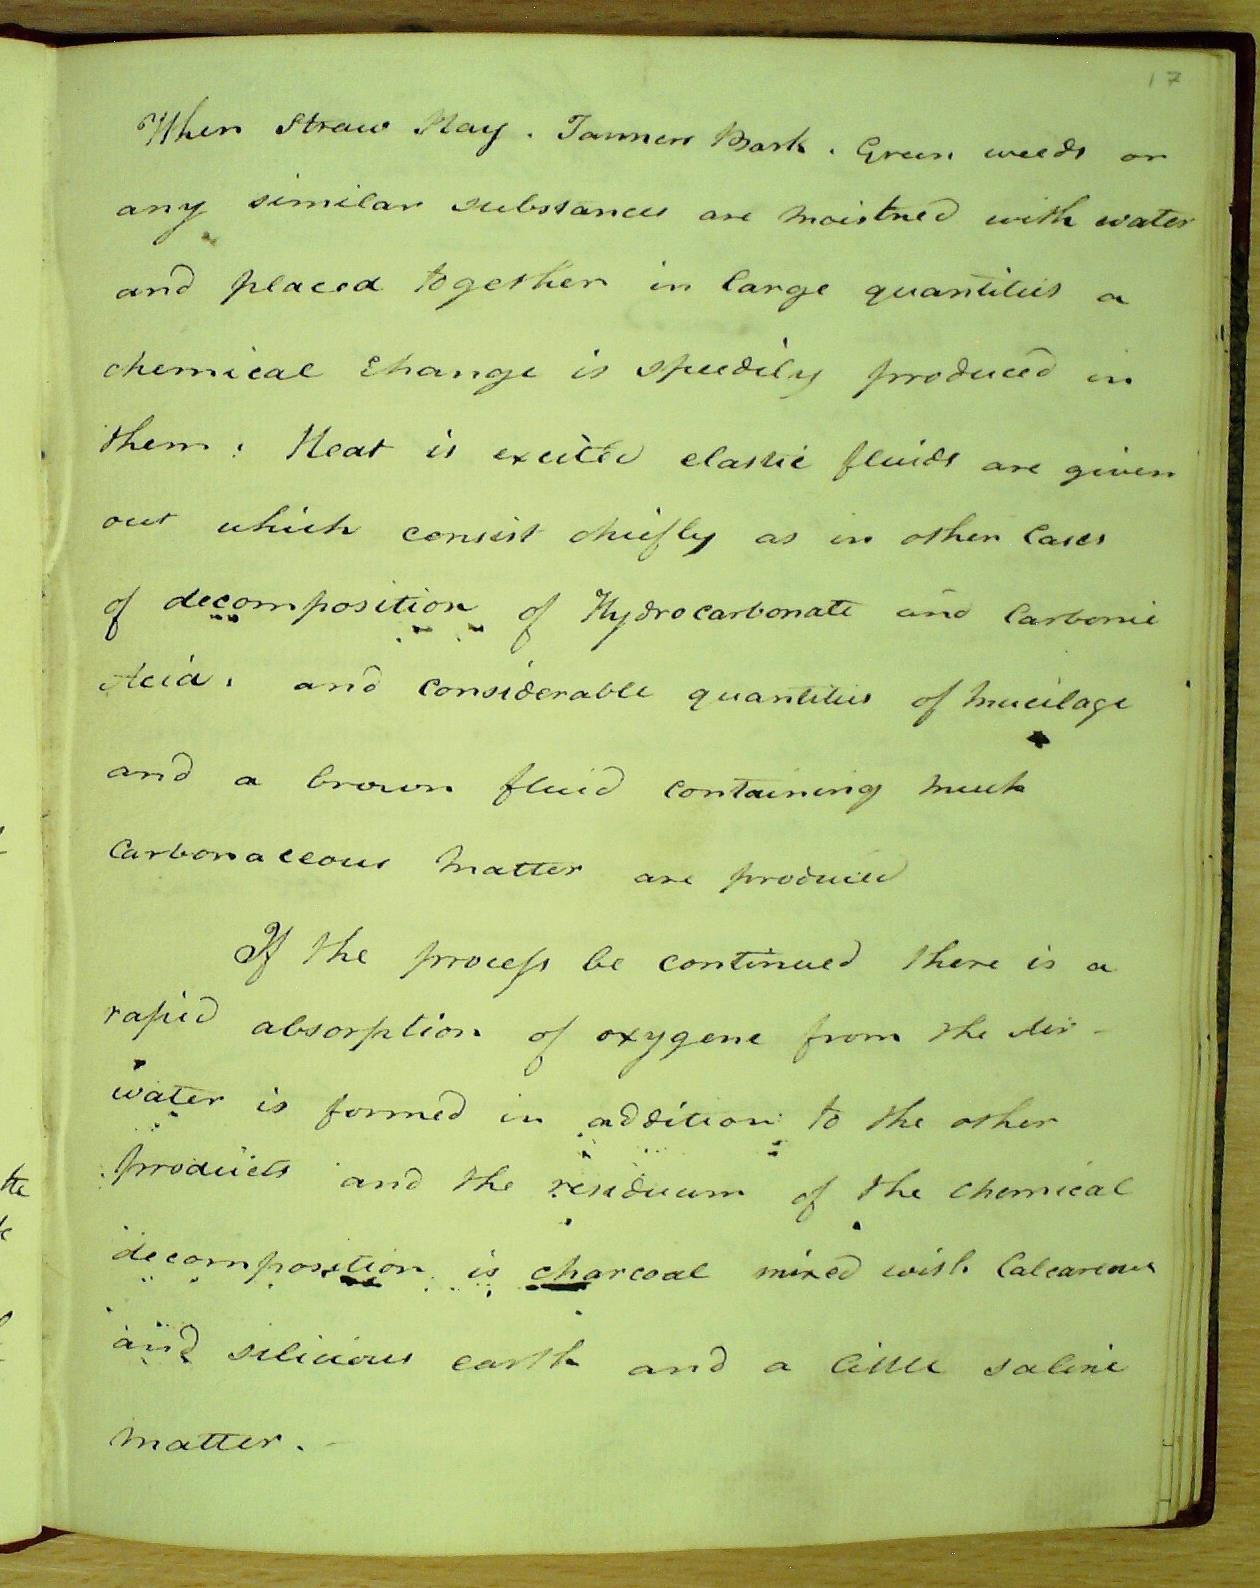 17
When Straw Hay. Tanners Bark. Green weeds or
any similar substances are moistned with water
and placed together in large quantities a
chemical change is speedily produced in
them: Heat is excited elastic fluids are given
out which consist chiefly as in other Cases
of decomposition of Hydrocarbonate and Carbonic
Acid. and considerable quantities of mucilage
and a brown fluid containing much
Carbonaceous matter are produced
If the process be continued there is a
rapid absorption of oxygene from the Air -
water is formed in addition to the other
products and the residuum of the chemical
decomposition is charcoal mixed with Calcareous
and silicious earth and a little saline
matter. -